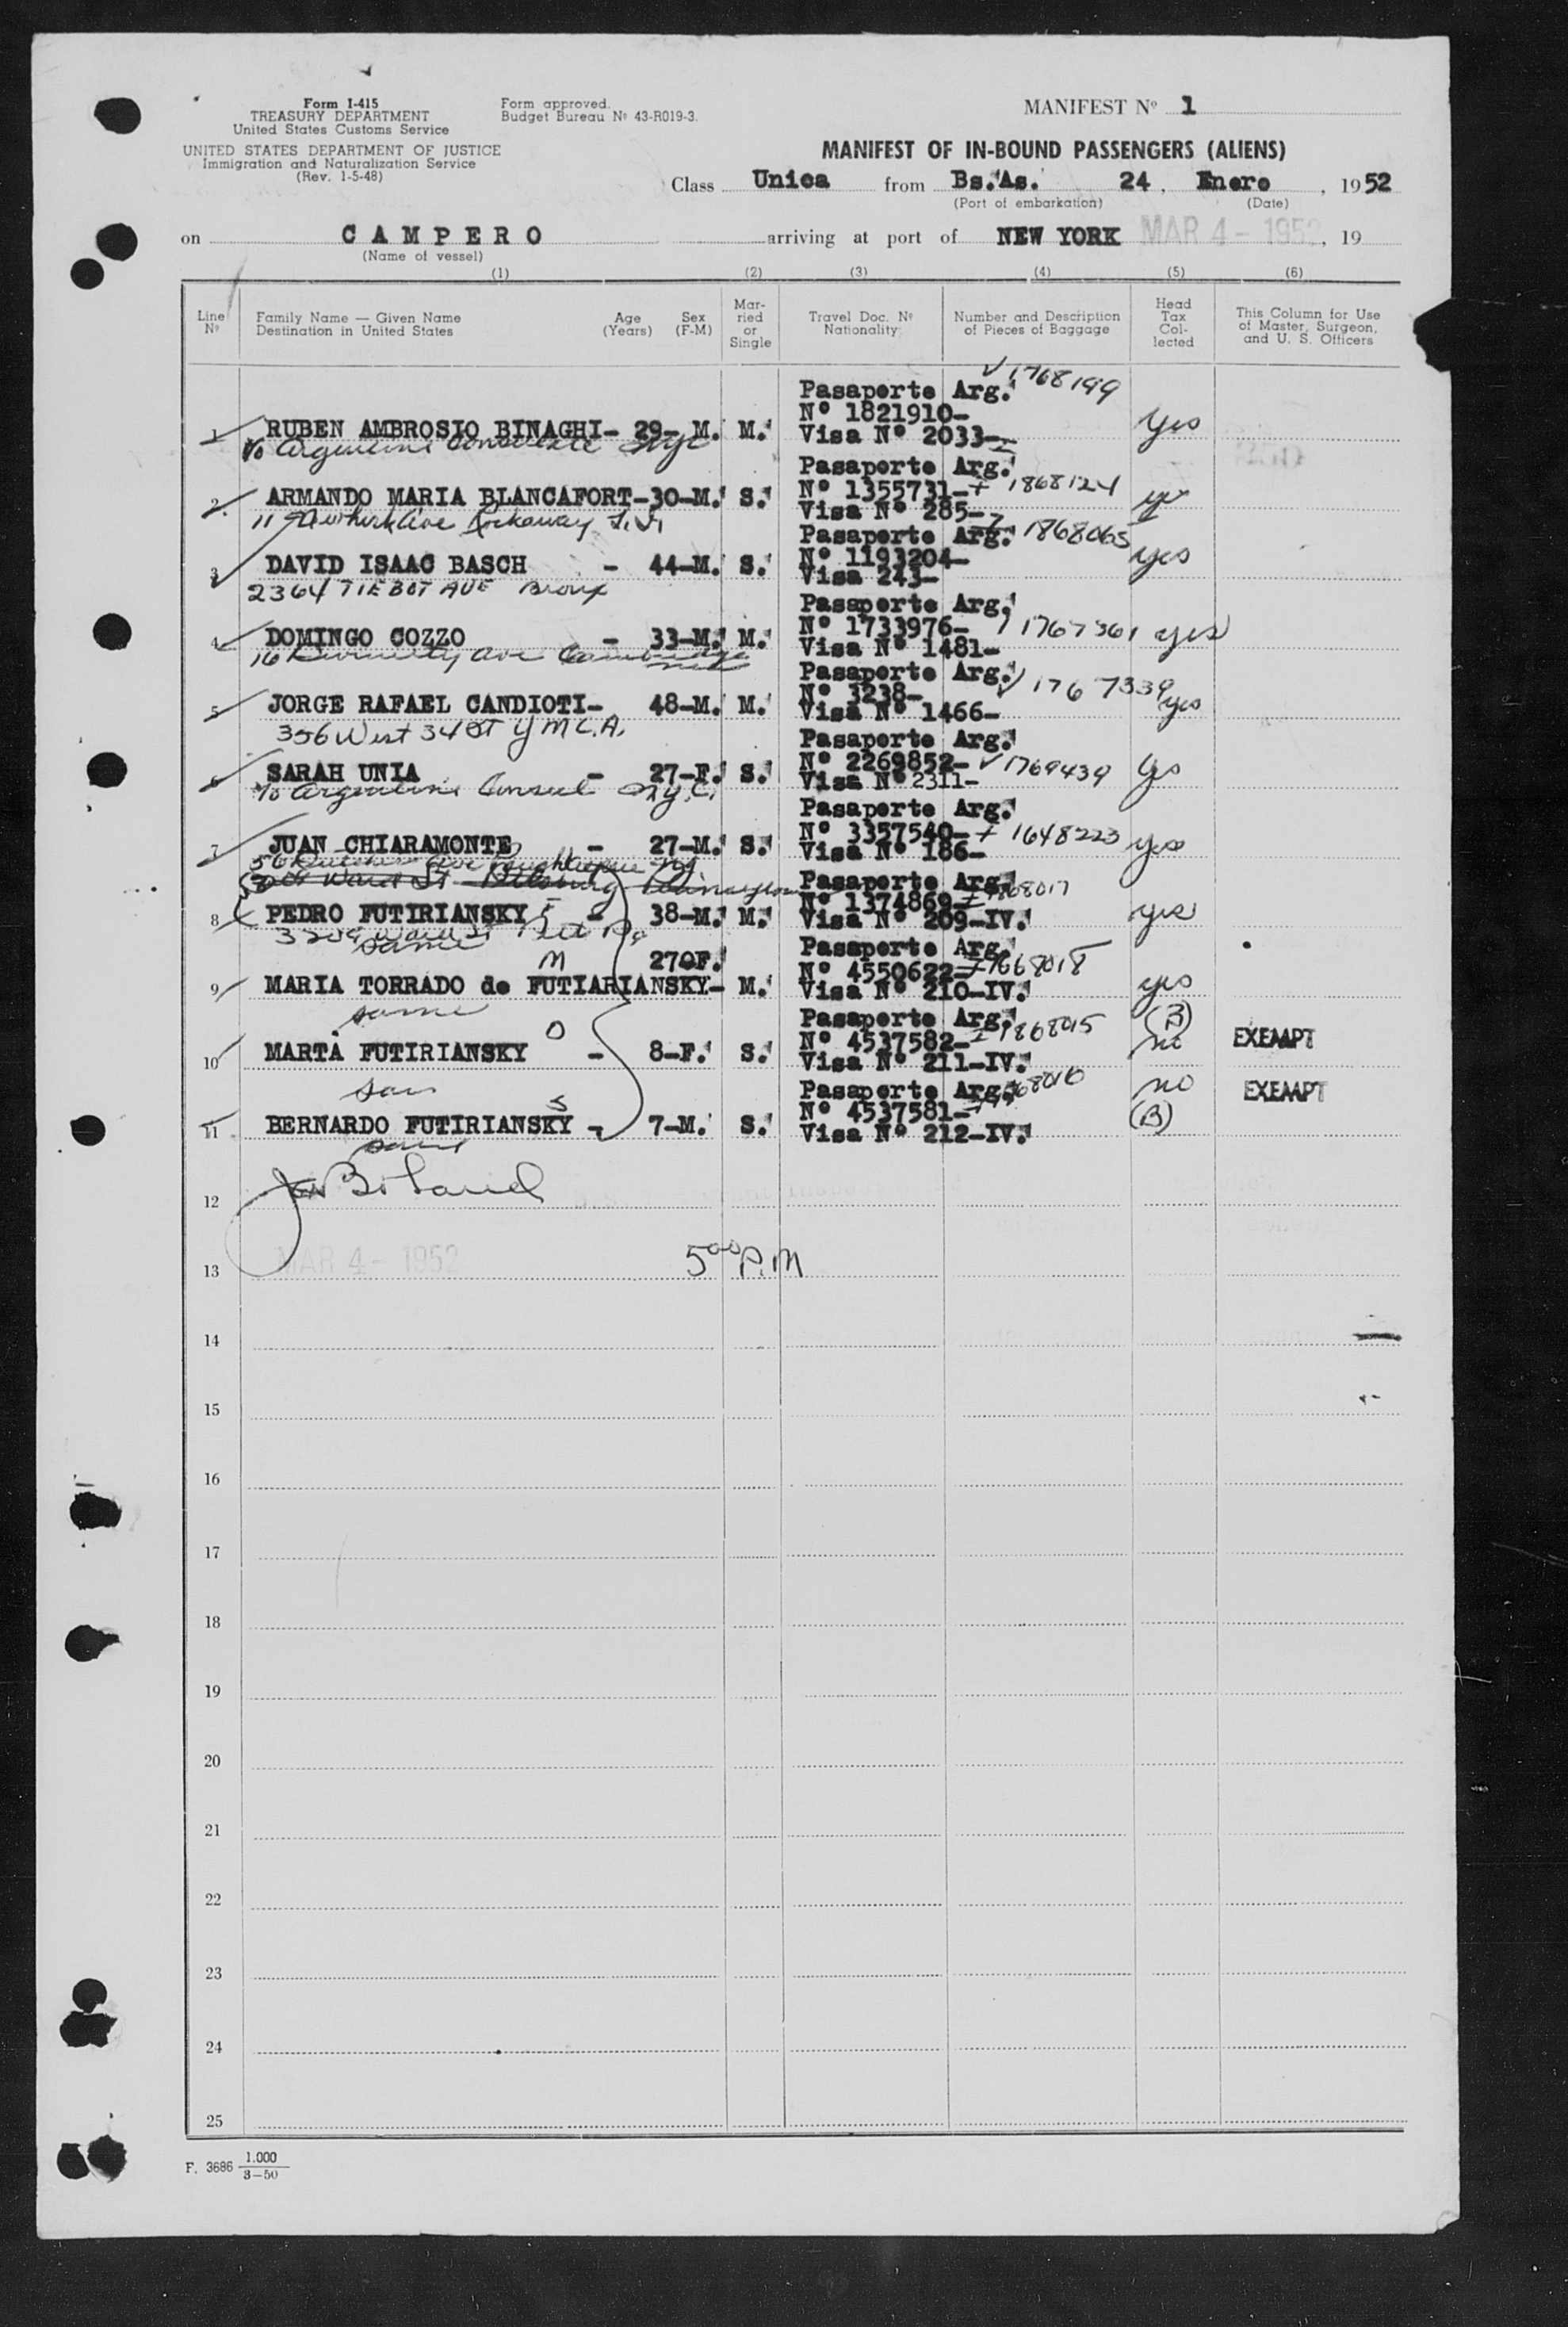 Form I-415
TREASURY DEPARTMENT
United States Customs Service
UNITED STATES DEPARTMENT OF JUSTICE
Immigration and Naturalization Service
(Rev. 1-5-48)
Form approved.
Budget Bureau Nº 43-R019-3.
MANIFEST Nº 1
MANIFEST OF IN-BOUND PASSENGERS (ALIENS)
Class Unica from Bs.As. 24, Enero, 1952
(Port of embarkation) (Date)
on CAMPERO arriving at port of NEW YORK MAR 4 - 1952, 19
(Name of vessel)
(1) (2) (3) (4) (5) (6)
Line Nº
Family Name — Given Name
Destination in United States
Age (Years)
Sex (F-M)
Married or Single
Travel Doc. Nº
Nationality
Number and Description of Pieces of Baggage
Head Tax Collected
This Column for Use of Master, Surgeon, and U. S. Officers
Pasaporte Arg. 1768199
Nº 1821910-
1 RUBEN AMBROSIO BINAGHI- 29- M. M. Visa Nº 2033- yes
c/o Argentine Consulate NYC
Pasaporte Arg.
2 ARMANDO MARIA BLANCAFORT-30-M. S. Nº 1355731- 1868124 yes
Visa Nº 285-
Ave Rockaway L.I.
Pasaporte Arg. 1868065
3 DAVID ISAAC BASCH - 44-M. S. Nº 1193204- yes
Visa 243-
2364 TIEBOT AVE Bronx
Pasaporte Arg.
4 DOMINGO COZZO - 33-M. M. Nº 1733976- 1767361 yes
Visa Nº 1481-
16 Ave Cambridge
Pasaporte Arg.
5 JORGE RAFAEL CANDIOTI- 48-M. M. Nº 3238- 1767339 yes
Visa Nº 1466-
356 West 34 ST YMCA.
Pasaporte Arg.
6 SARAH UNIA - 27-F. S. Nº 2269852- 1769439 yes
Visa Nº 2311-
c/o Argentine Consul N.Y.C.
Pasaporte Arg.
7 JUAN CHIARAMONTE - 27-M. S. Nº 3357540- 1648223 yes
Visa Nº 186-
56 Ave Poughkeepsie NY
Ward St
Pasaporte Arg.
Nº 1374869- 1868017
8 PEDRO FUTIRIANSKY - 38-M. M. Visa Nº 209-IV. yes
3209 Ward St Pitt Pa
same
Pasaporte Arg.
M 270F. Nº 4550622- 1868018
9 MARIA TORRADO de FUTIARIANSKY- M. Visa Nº 210-IV. yes
same
Pasaporte Arg. (B)
O Nº 4537582- 1868015
10 MARTA FUTIRIANSKY - 8-F. S. Visa Nº 211-IV. no EXEMPT
same
Pasaporte Arg. 1868016 no EXEMPT
S Nº 4537581-
11 BERNARDO FUTIRIANSKY - 7-M. S. Visa Nº 212-IV. (B)
same
12
13 MAR 4 - 1952 5 00 P.M
14
15
16
17
18
19
20
21
22
23
24
25
F. 3686 1.000
3-50